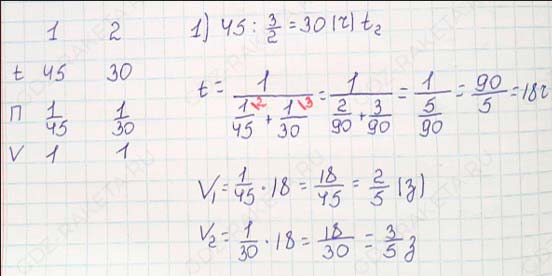 1 2
t 45 30
П 1/45 1/30
V 1 1
1) 45 : 3/2 = 30 (ч) t₂
t = 1/(1/45 \2 + 1/30 \3) = 1/(2/90 + 3/90) = 1/(5/90) = 90/5 = 18ч
V₁ = 1/45 · 18 = 18/45 = 2/5 (з)
V₂ = 1/30 · 18 = 18/30 = 3/5 з
GDE-RAKETA.RU